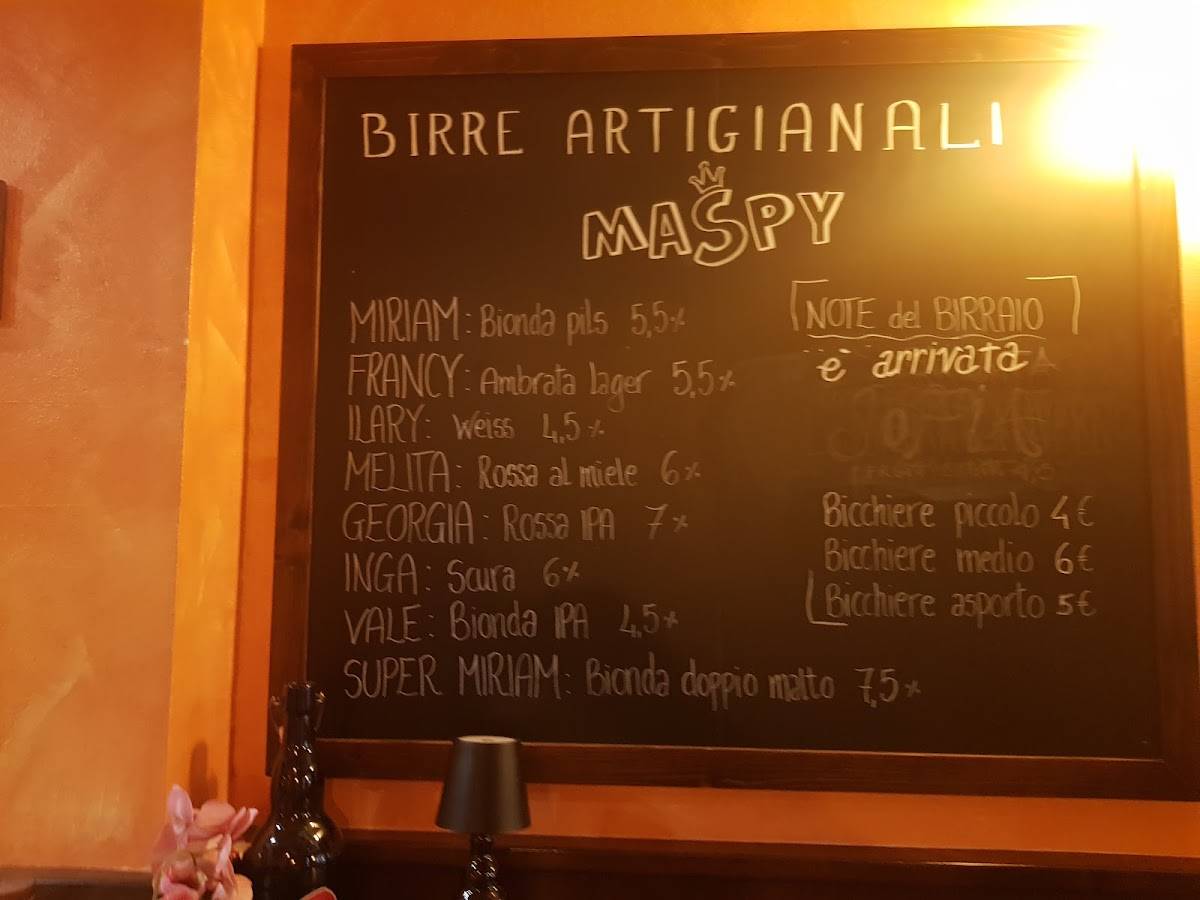 BIRRE ARTIGIANALI
MASPY
MIRIAM: Bionda pils 5,5%
FRANCY: Ambrata lager 5,5%
ILARY: Weiss 4,5%
MELITA: Rossa al miele 6%
GEORGIA: Rossa IPA 7%
INGA: Scura 6%
VALE: Bionda IPA 4,5%
SUPER MIRIAM: Bionda doppio malto 7,5%
NOTE del BIRRAIO
è arrivata
Bicchiere piccolo 4€
Bicchiere medio 6€
Bicchiere asporto 5€